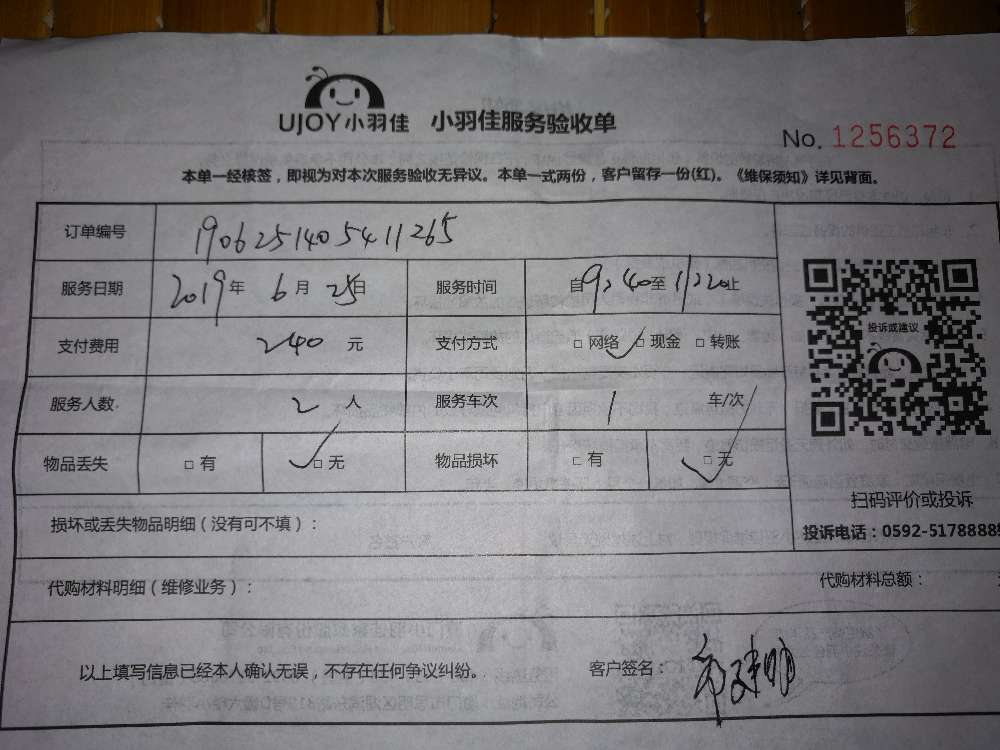 UJOY小羽佳 小羽佳服务验收单
No. 1256372
本单一经核签，即视为对本次服务验收无异议。本单一式两份，客户留存一份(红)。《维保须知》详见背面。
订单编号 1906251405411265
服务日期 2019年 6月 25日 服务时间 自9:40至11:20止
支付费用 240 元 支付方式 □ 网络 ✓ □ 现金 □ 转账
服务人数 2 人 服务车次 1 车/次
物品丢失 □ 有 ✓ □ 无 物品损坏 □ 有 ✓ □ 无
投诉或建议
扫码评价或投诉
投诉电话：0592-5178888
损坏或丢失物品明细（没有可不填）：
代购材料明细（维修业务）： 代购材料总额：
以上填写信息已经本人确认无误，不存在任何争议纠纷。 客户签名：